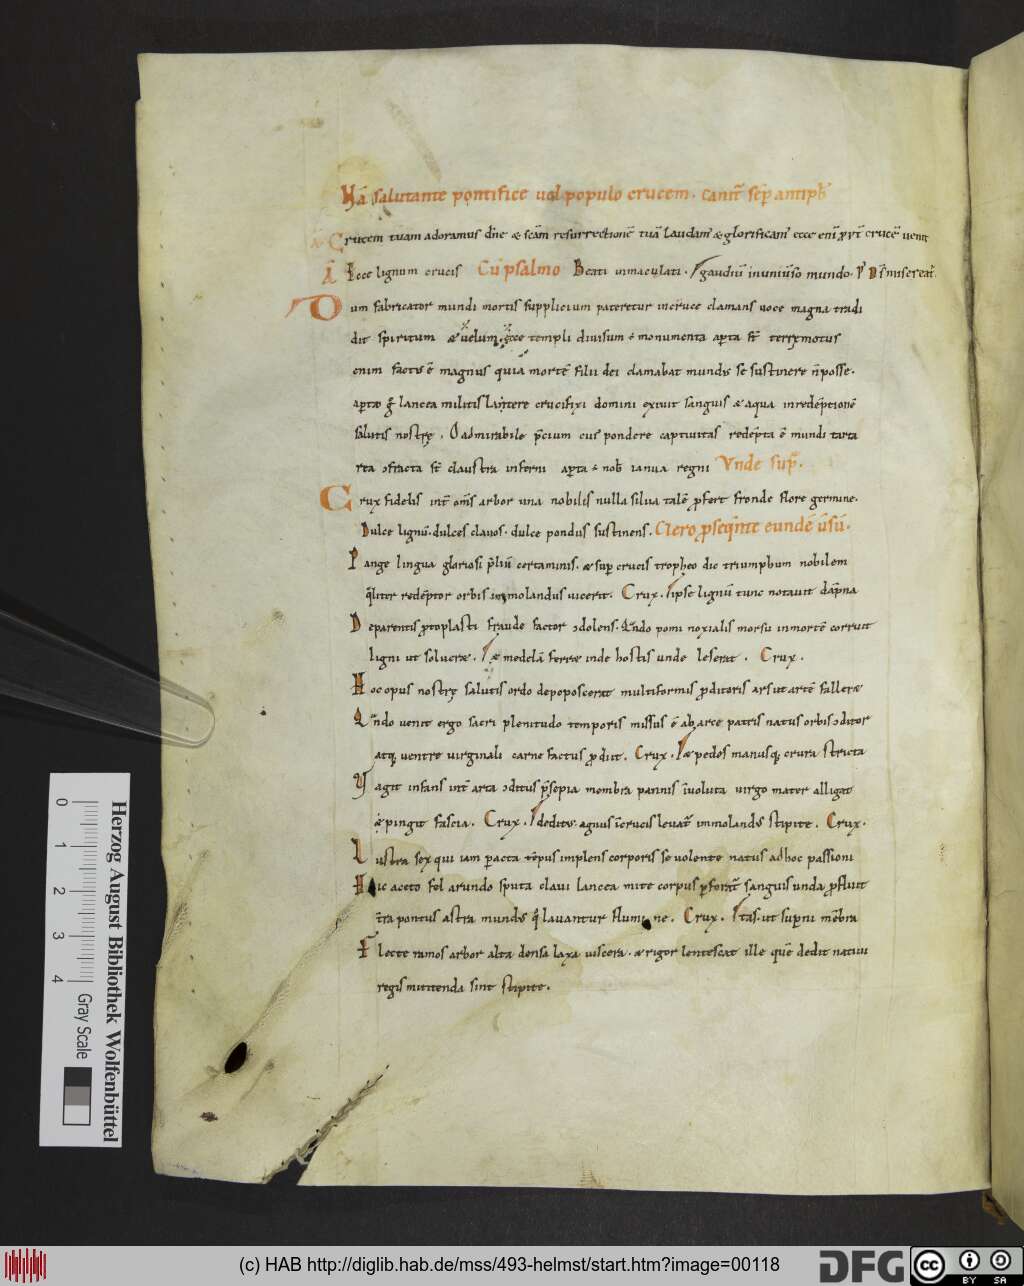 salutante pontifice uel populo crucem. canit̄ semp̄ antiph̄
Crucem tuam adoramus dn̄e & scām resurrectionē tuā laudam᷒ & glorificam᷒ ecce eni᷒ crucē uenit
Ecce lignum crucis Cū psalmo Beati inmaculati. gaudiū inuniūso mundo. Dˢ misereat᷒
Dum fabricator mundi mortis supplicium pateretur incruce clamans uoce magna tradi
dit spiritum & uelum ecce templi diuisum ē monumenta apta st̄ terremotus
enim factus ē magnus quia mortē filii dei clamabat mundus se sustinere n̄ posse.
apto g̊ lancea militis latere crucifixi domini exiuit sanguis & aqua inredēptionē
salutis nostrę. O admirabile p̄cium cuius pondere captiuitas redēpta ē mundi tarta
rea ɔfracta st̄ claustra inferni apta ē nob̄ ianua regni Vnde sup̄.
Crux fidelis int̄ om̄s arbor una nobilis nulla silua talē ꝓfert fronde flore germine.
Dulce lignū. dulces clauos. dulce pondus sustinens. Clero ꝓseq̄nte eundē ūsū.
Pange lingua gloriosi p̄liū certaminis. & sup crucis tropheo dic triumphum nobilem
q̄liter redēptor orbis inmolandus uicerit. Crux. ipse lignū tunc notauit dāpna
Deparentis ꝓtoplasti fraude factor ɔdolens. Q̄ndo pomi noxialis morsu inmortē corruit
ligni ut solueret. & medelā ferret inde hostis unde leserat. Crux.
Hoc opus nostrę salutis ordo depoposcerat multiformis ꝓditoris ars ut artē falleret
Q̄ndo uenit ergo sacri plenitudo temporis missus ē abarce patris natus orbis ɔditor
atq; uentre uirginali carne factus ꝓdiit. Crux. & pedes manusq; crura stricta
Vagit infans int̄ arta ɔditus p̄sepia membra pannis īuoluta uirgo mater alligat
& pingit fascia. Crux. deditus agnus īcrucis leuat᷒ inmolandus stipite. Crux.
Lustra sex qui iam pacta tēpus implens corporis se uolente natus adhoc passioni
Hic aceto fel arundo sputa claui lancea mite corpus pforat᷒ sanguis unda ꝓfluit
t̄ra pontus astra mundus q̄ lauantur flumine. Crux. tas. ut supni mēbra
Flecte ramos arbor alta densa laxa uiscera. & rigor lentescat ille quē dedit natiui
regis mittenda sint stipite.
Herzog August Bibliothek Wolfenbüttel
0 1 2 3 4 Gray Scale
(c) HAB http://diglib.hab.de/mss/493-helmst/start.htm?image=00118
DFG
cc BY SA